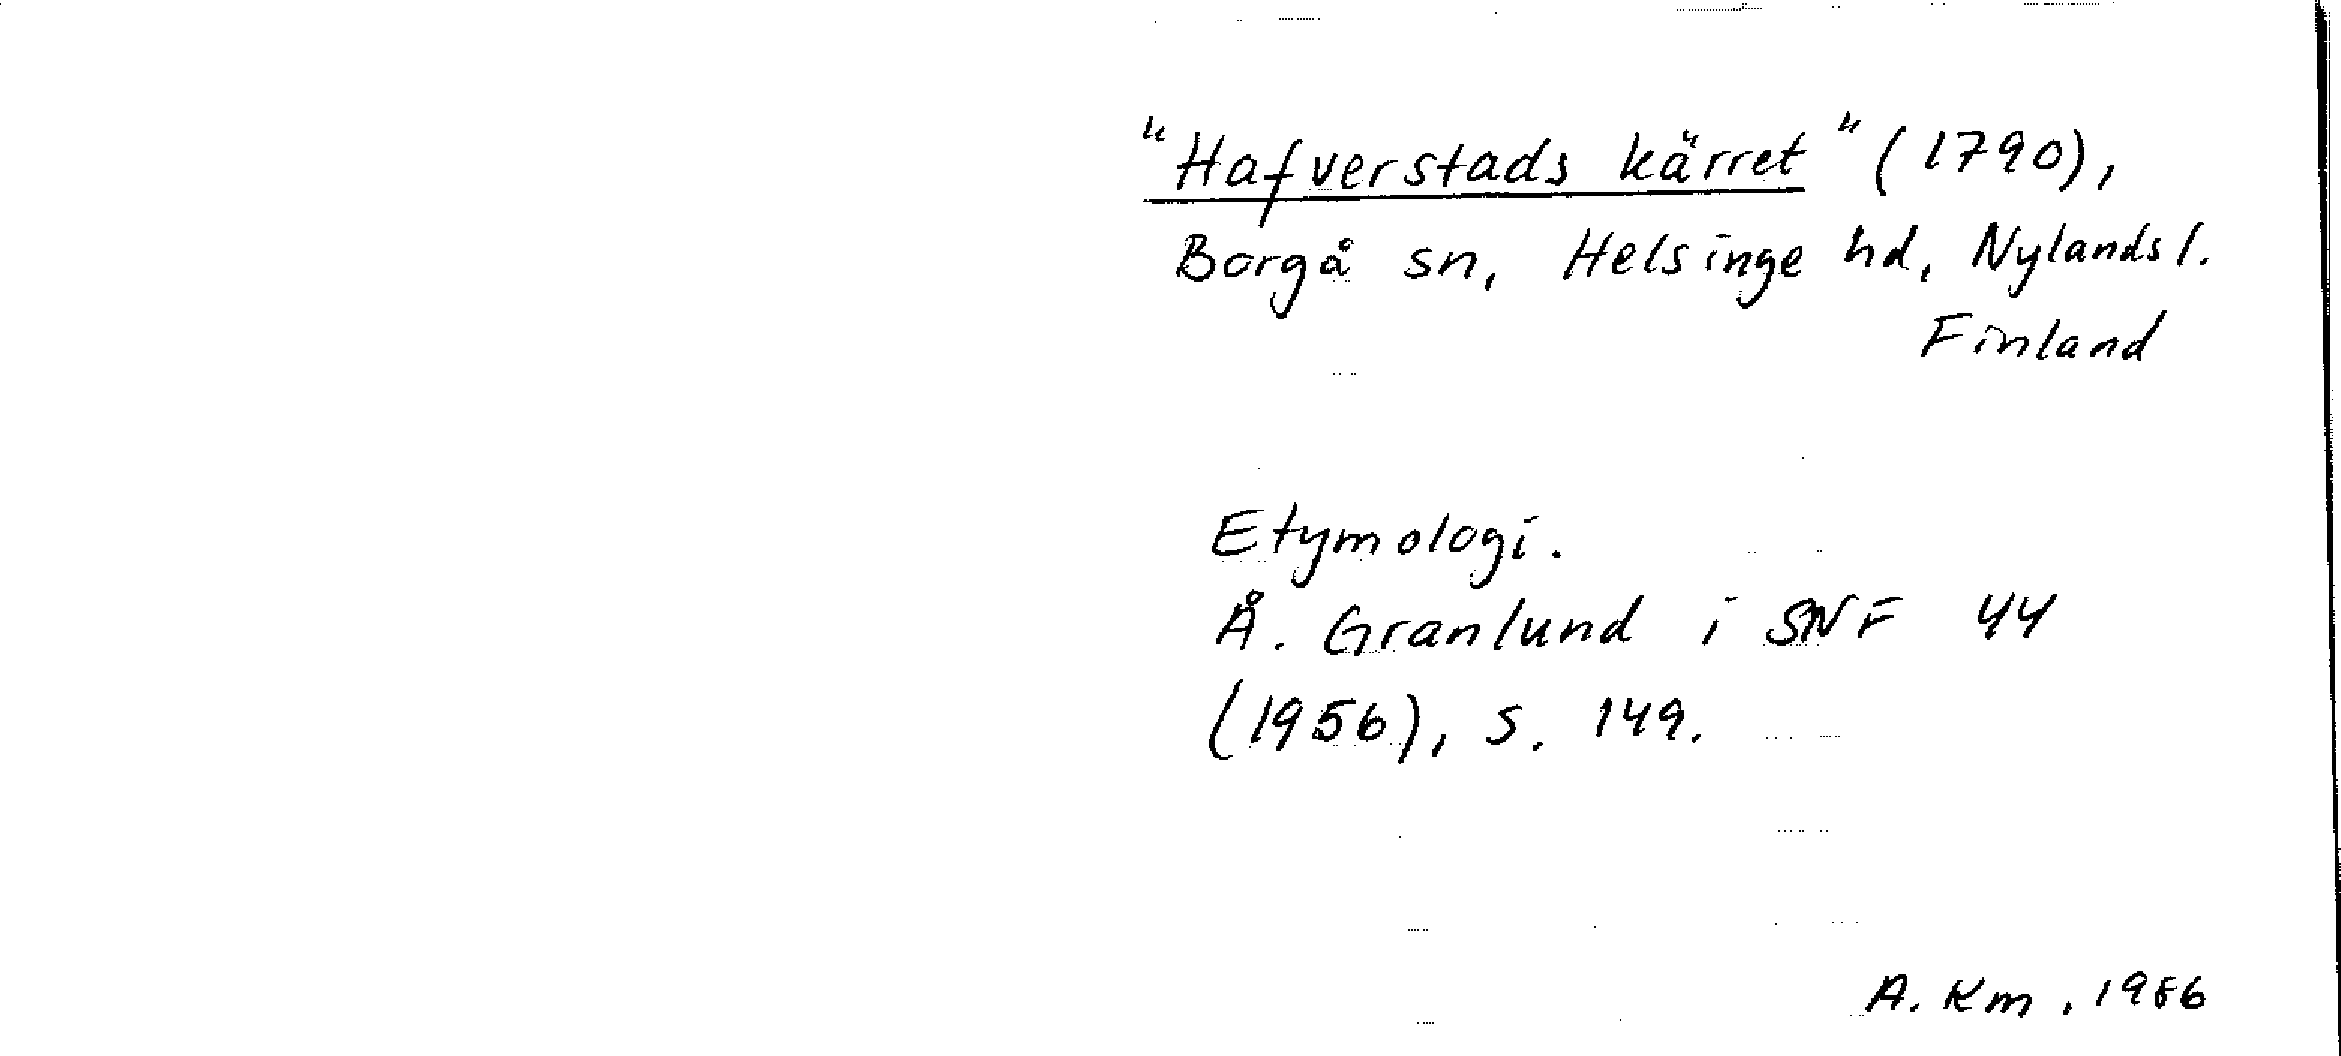 "Hafverstads kärret" (1790),
Borgå sn, Helsinge hd, Nylands l.
Finland
Etymologi.
Å. Granlund i SNF 44
(1956), s. 149.
A. Km. 1986